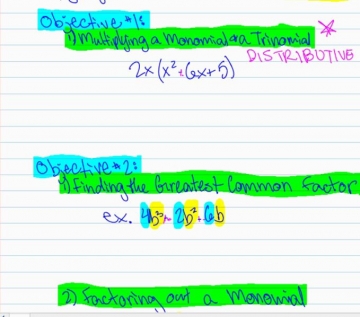 Objective #1:
1) Multiplying a Monomial & a Trinomial
DISTRIBUTIVE
2x(x² + 6x + 5)
Objective #2:
1) Finding the Greatest Common Factor
ex. 4b³ + 2b² + 6b
2) Factoring out a Monomial